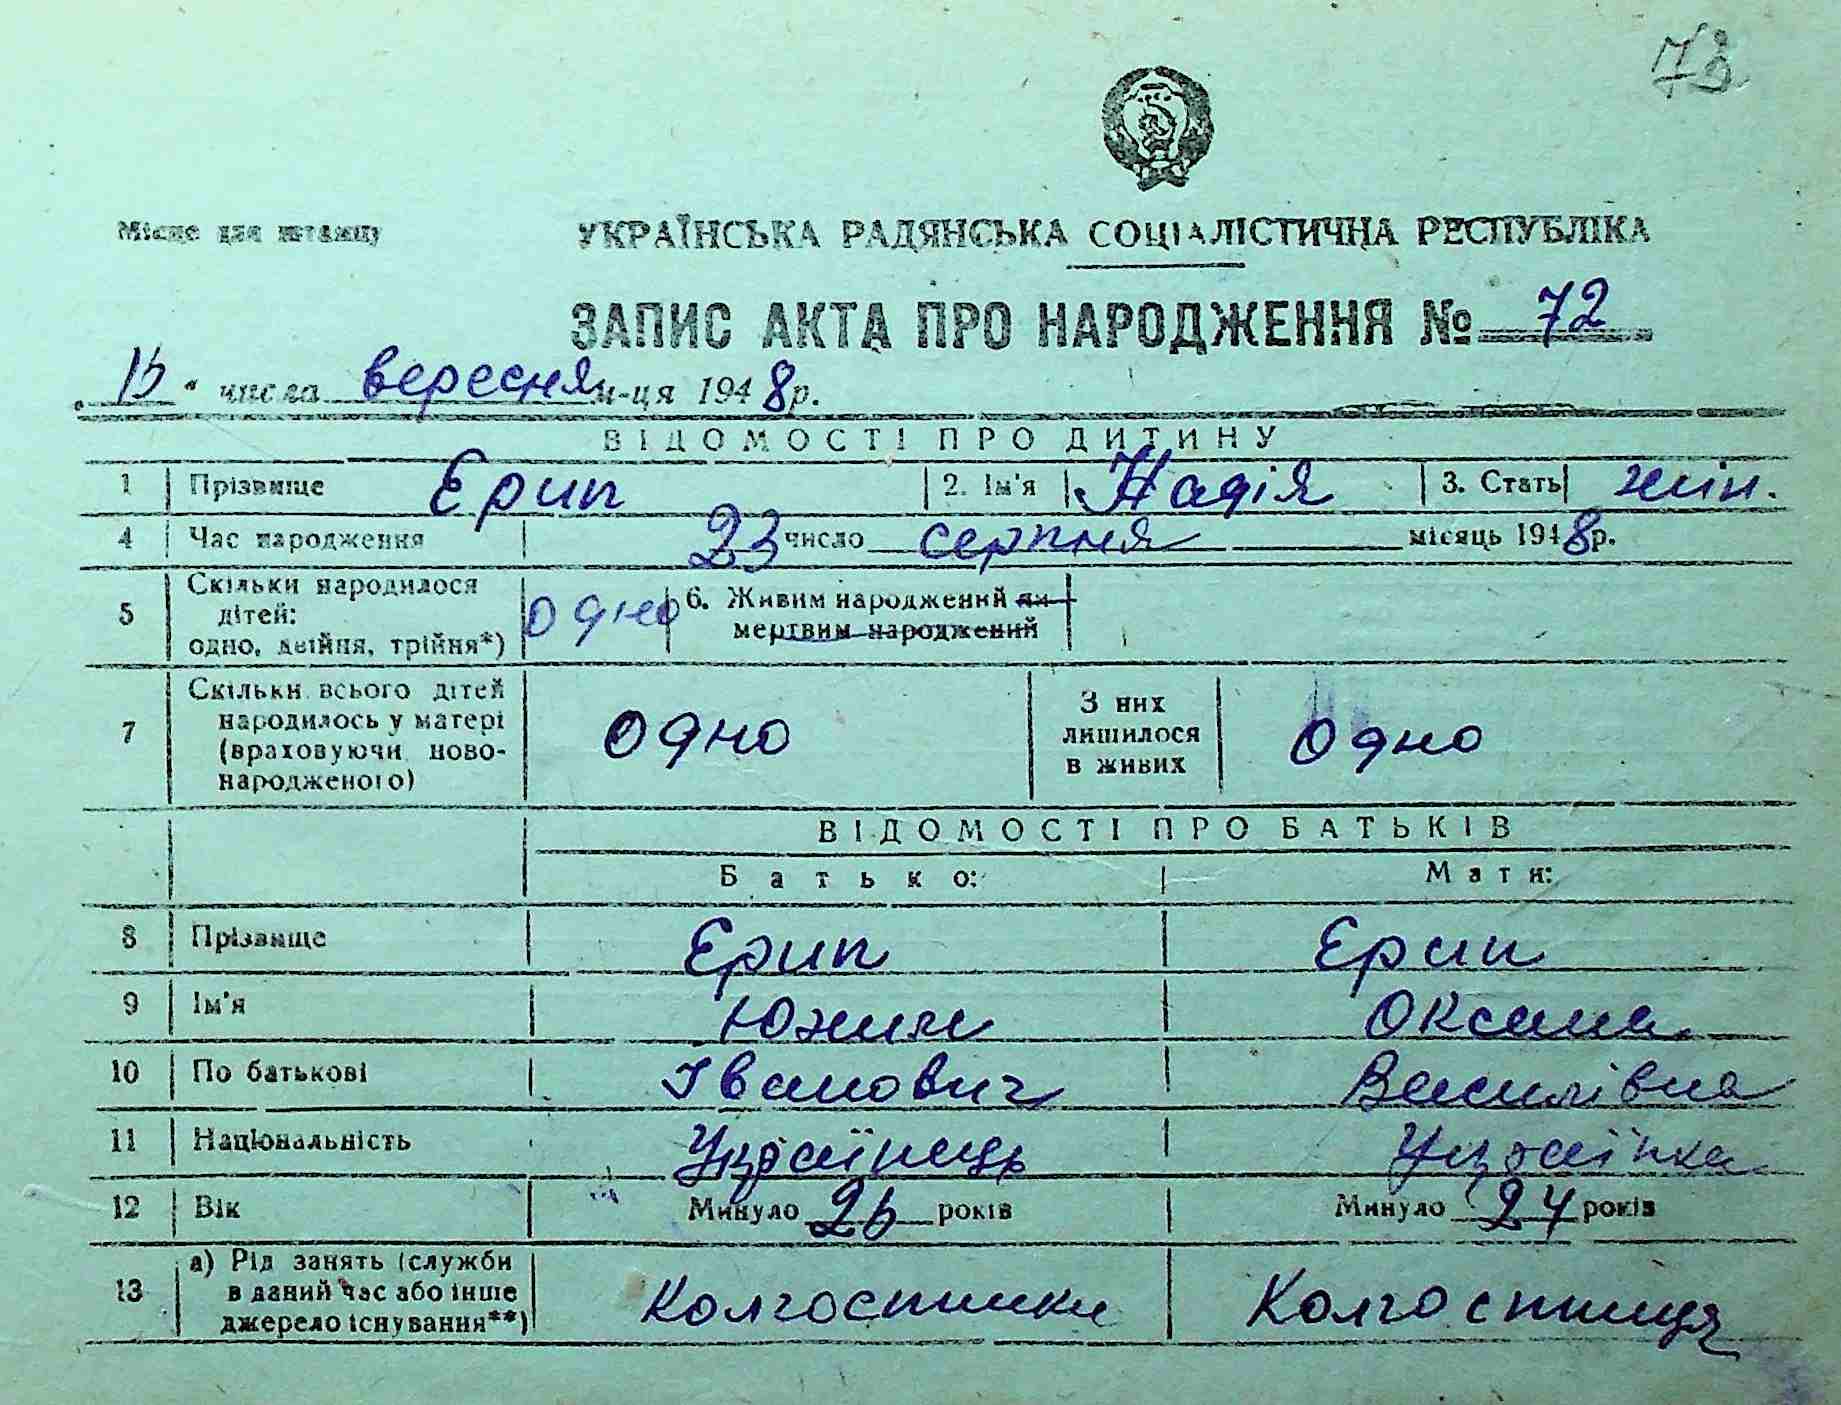 72
Місце для штампу
УКРАЇНСЬКА РАДЯНСЬКА СОЦІАЛІСТИЧНА РЕСПУБЛІКА
ЗАПИС АКТА ПРО НАРОДЖЕННЯ № 72
„15“ числа вересня м-ця 1948р.
ВІДОМОСТІ ПРО ДИТИНУ
1 Прізвище Ерип 2. Ім'я Надія 3. Стать жін.
4 Час народження 23 число серпня місяць 1948р.
5 Скільки народилося дітей: одно, двійня, трійня*) одно 6. Живим народжений чи мертвим народжений
7 Скільки всього дітей народилось у матері (враховуючи новонародженого) одно З них лишилося в живих одно
ВІДОМОСТІ ПРО БАТЬКІВ
Батько: Мати:
8 Прізвище Ерип Ерип
9 Ім'я Южим Оксана
10 По батькові Іванович Василівна
11 Національність Українець Українка
12 Вік Минуло 25 років Минуло 24 років
13 а) Рід занять (служби в даний час або інше джерело існування**) Колгоспник Колгоспниця